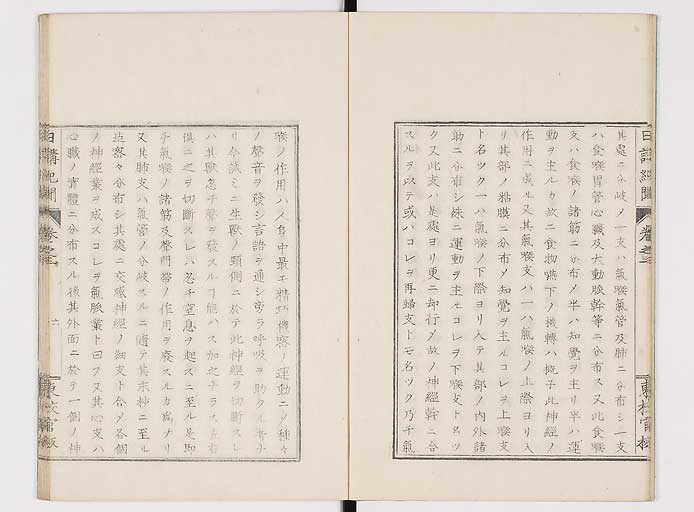 其處ニ分岐メ一支ハ氣喉氣管及肺ニ分布シ一支
ハ食喉胃管心臓及大動脉幹等ニ分布ス又此食喉
支ハ食喉ノ諸筋ニ分布メ半ハ知覺ヲ主リ半ハ運
動ヲ主ル故ニ食物嚥下ノ機轉ハ概子此神經ノ
作用ニ成ル又其氣喉支ハ一ハ氣喉ノ上際ヨリ入
リ其部ノ粘膜ニ分布メ知覺ヲ主ルコレヲ上喉支
ト名ツク一ハ氣喉ノ下際ヨリ入テ其部ノ内外諸
動ニ分布シ殊ニ運動ヲ主ルコレヲ下喉支ト名ツ
ク又此支ハ是處ヨリ更ニ却行メ故ノ神經幹ニ合
スルヲ以テ或ハコレヲ再歸支トモ名ツク乃チ氣
喉ノ作用ハ人身中最モ精巧機密ノ運動ニメ種々
ノ聲音ヲ發シ言語ヲ通シ旁ラ呼吸ヲ助クル者ナ
リ今試ミニ生獸ノ頸側ニ於テ此神經ヲ切斷スレ
ハ其獸忽チ聲ヲ發スル能ハス加之ナラス左右
俱ニ之ヲ切斷スレハ忽チ窒息ヲ起スニ至ル是卽
チ氣喉ノ諸筋及聲門帶ノ作用ヲ廢スルカ爲ナリ
又其肺支ハ氣管ノ分岐スルニ隨テ其末梢ニ至ル
迄密々分布シ其處ニ交感神經ノ細支ト合メ各個
ノ神經叢ヲ成スコレヲ氣脉叢ト曰フ又其心支ハ
心臓ノ實體ニ分布スル後其外面ニ於テ一個ノ神
日講紀聞 卷之二 六 東校官版